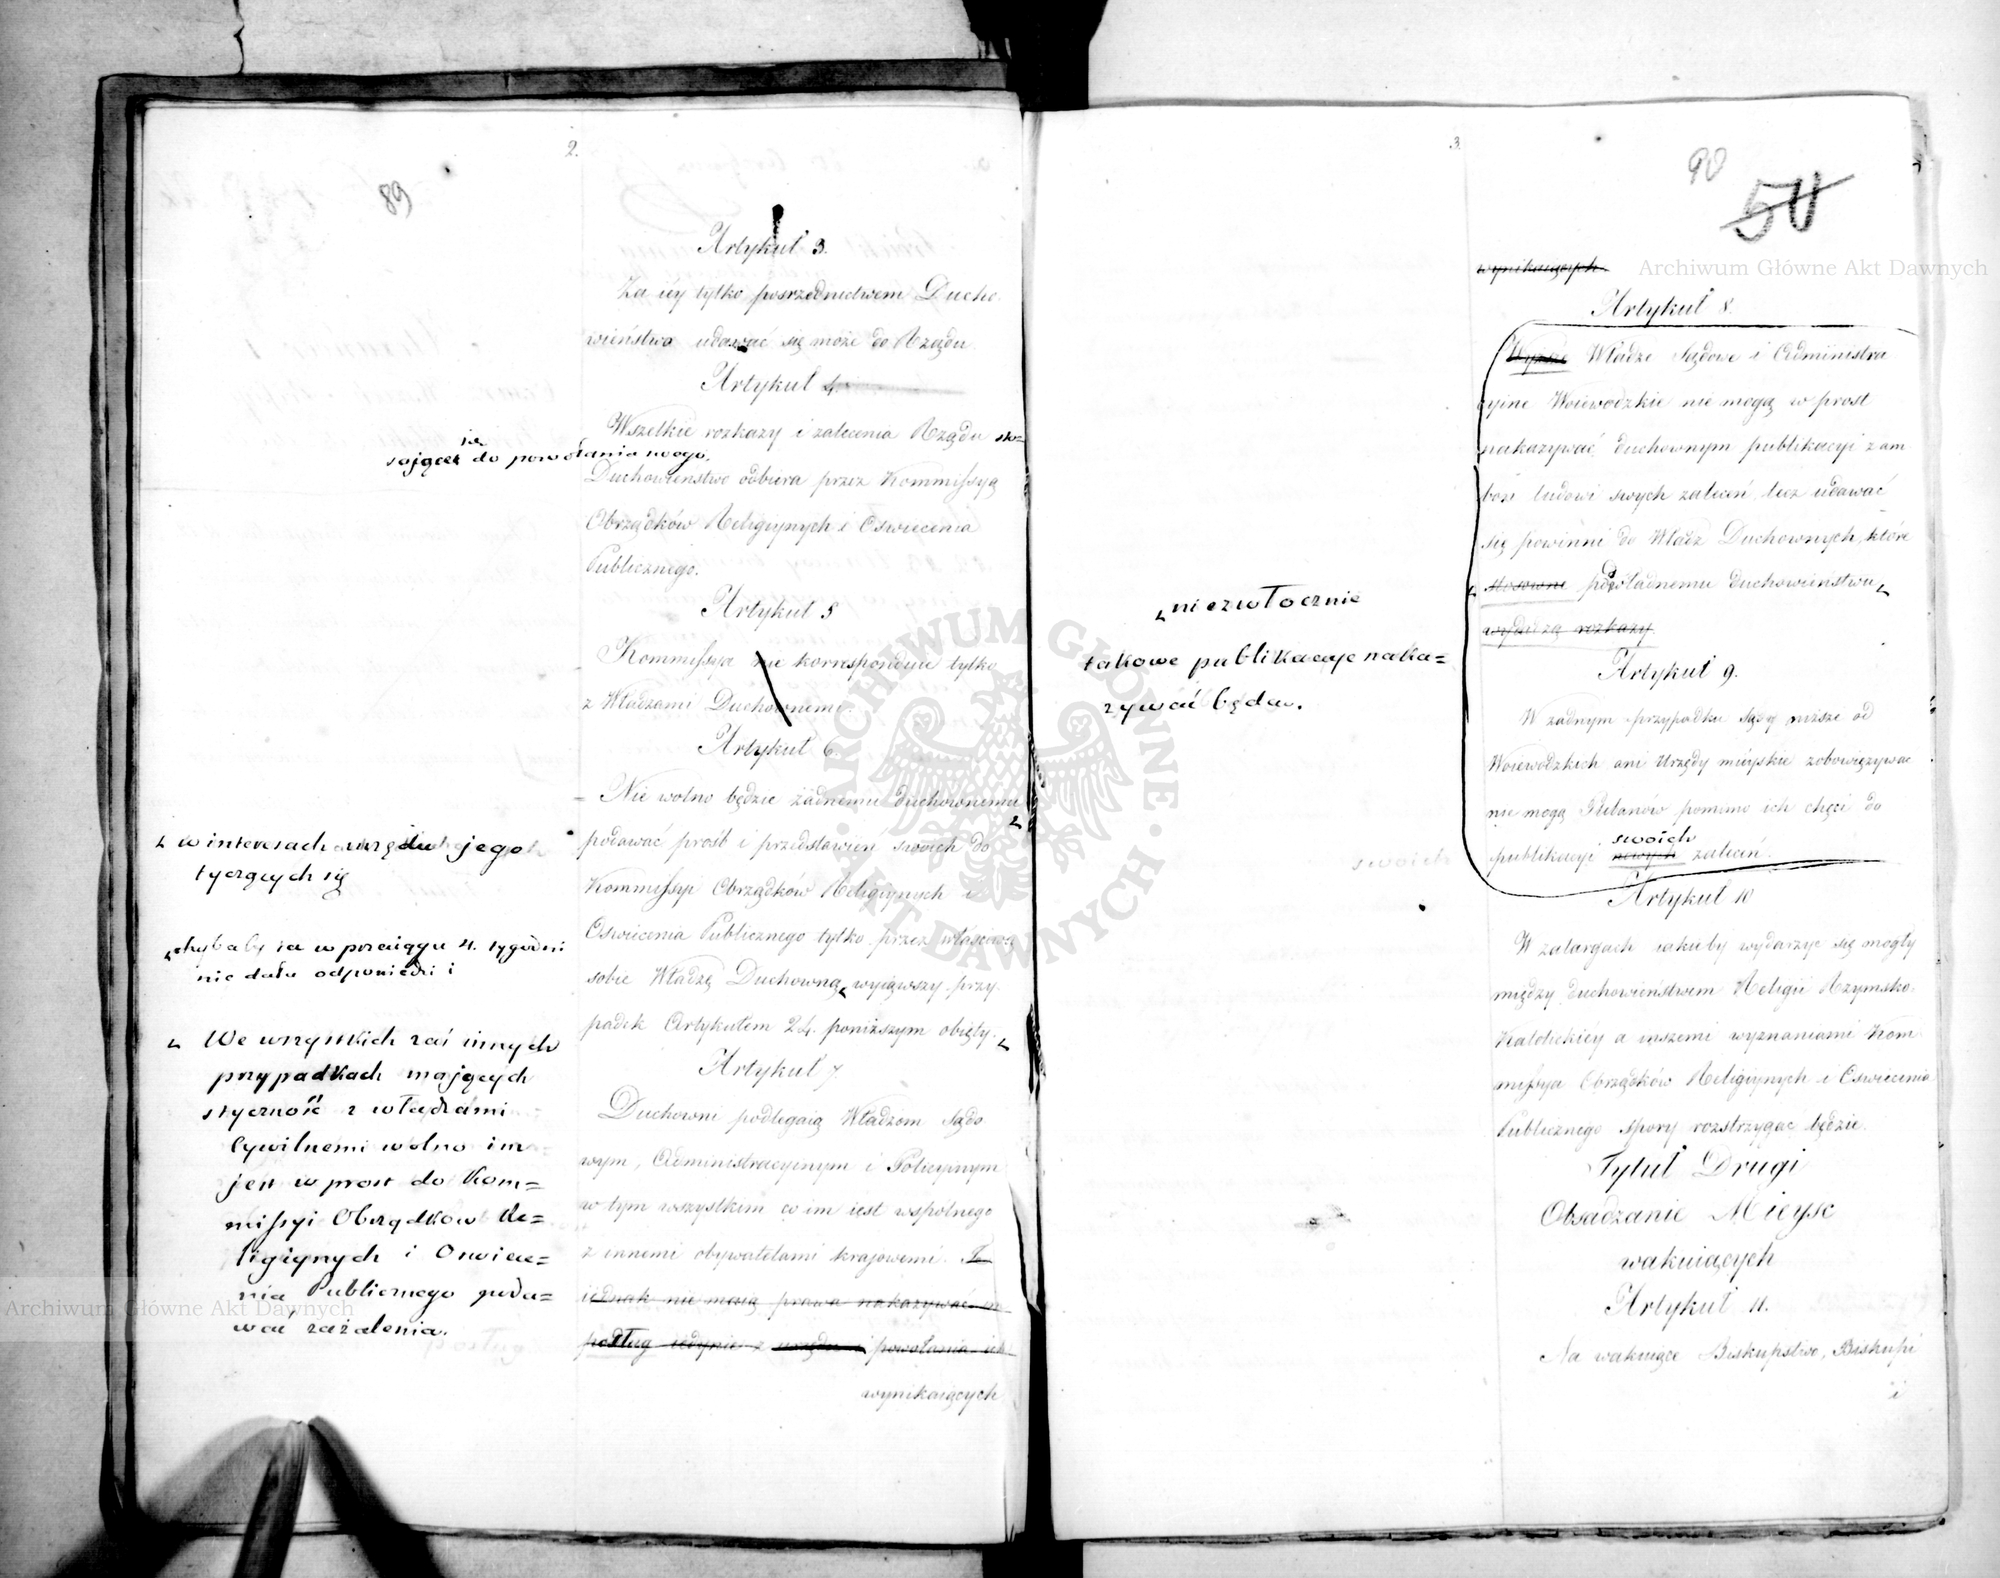 2.
89
Artykuł 3.
Za iey tylko posrzednictwem Ducho
wieństwo udawać się może do Rządu.
Artykuł 4.
Wszelkie rozkazy i zalecenia Rządu sto=
się
sojące do powołania swego,
Duchowieństwo odbiera przez Kommissyą
Obrządków Religiynych i Oswiecenia
Publicznego.
Artykuł 5
Kommissya nie korresponduie tylko
z Władzami Duchownemi.
Artykuł 6.
Nie wolno będzie żadnemu duchownemu
podawać prośb i przedstawień swoich do
Kommissyi Obrządków Religiynych i
Oswiecenia Publicznego tylko przez właściwą
sobie Władzę Duchowną, wyiąwszy przy
padek Artykułem 24. poniższym obięty.
Artykuł 7.
Duchowni podlegaią Władzom Sądo
wym, Administracyinym i Policyinym
w tym wszystkim co im iest wspólnego
z innemi obywatelami krajowemi.
iednak nie maią prawa nakazywać im
podług iedynie z urzędu i powołania ich
wynikaiących
w interesach urzędu jego
tyczących się
chybaby ta w przeciągu 4. tygodni
nie dała odpowiedzi i
We wszystkich zaś innych
przypadkach mających
styczność z władzami
Cywilnemi wolno im
jest wprost do Kom=
missyi Obrządków Re=
ligiynych i Oswiece=
nia Publicznego poda=
wać zażalenia.
3.
90
50
wynikaiących.
Artykuł 8.
Wyższe Władze Sądowe i Administra
cyine Woiewodzkie nie mogą w prost
nakazywać duchownym publikacyi z am
bon ludowi swych zaleceń, lecz udawać
się powinni do Władz Duchownych, które
stosowne podwładnemu duchowieństwu
wydaią rozkazy.
niezwłocznie
takowe publikacye naka=
zywać będą.
Artykuł 9.
W żadnym przypadku sądy niższe od
Woiewodzkich ani Urzędy mieyskie zobowięzywać
nie mogą Plebanów pomimo ich chęci do
swoich
publikacyi nowych zaleceń.
Artykuł 10
W zatargach iakieby wydarzyc się mogły
między duchowieństwem Religii Rzymsko-
Katolickiey a inszemi wyznaniami Kom
missya Obrządków Religiynych i Oswiecenia
Publicznego spory rozstrzygać będzie.
Tytuł Drugi
Obsadzanie Mieysc
wakuiących
Artykuł 11.
Na wakuiące Biskupstwo, Biskupi
i
Archiwum Główne Akt Dawnych
Archiwum Główne Akt Dawnych
ARCHIWUM GŁÓWNE AKT DAWNYCH